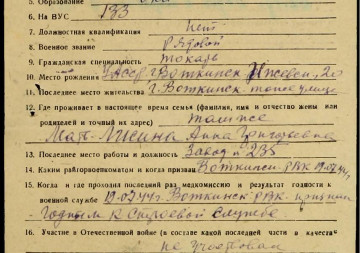 5. Образование
6. На ВУС 133
7. Должностная квалификация нет
8. Военное звание Рядовой
9. Гражданская специальность токарь
10. Место рождения г. Воткинск
11. Последнее место жительства г. Воткинск
12. Где проживает в настоящее время семья (фамилия, имя и отчество жены или
родителей и точный их адрес)
Мать Анна Григорьевна
13. Последнее место работы и должность Завод № 235
14. Каким райгорвоенкоматом и когда призван Воткинск. РВК
15. Когда и где проходил последний раз медкомиссию и результат годности к
военной службе Воткинск РВК признан
Годным к строевой службе
16. Участие в Отечественной войне (в составе какой последней части и в качестве
не участвовал